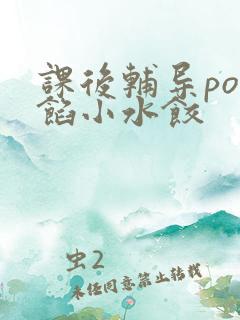 課後輔导po
餡小水餃
虫2
未经同意禁止转载